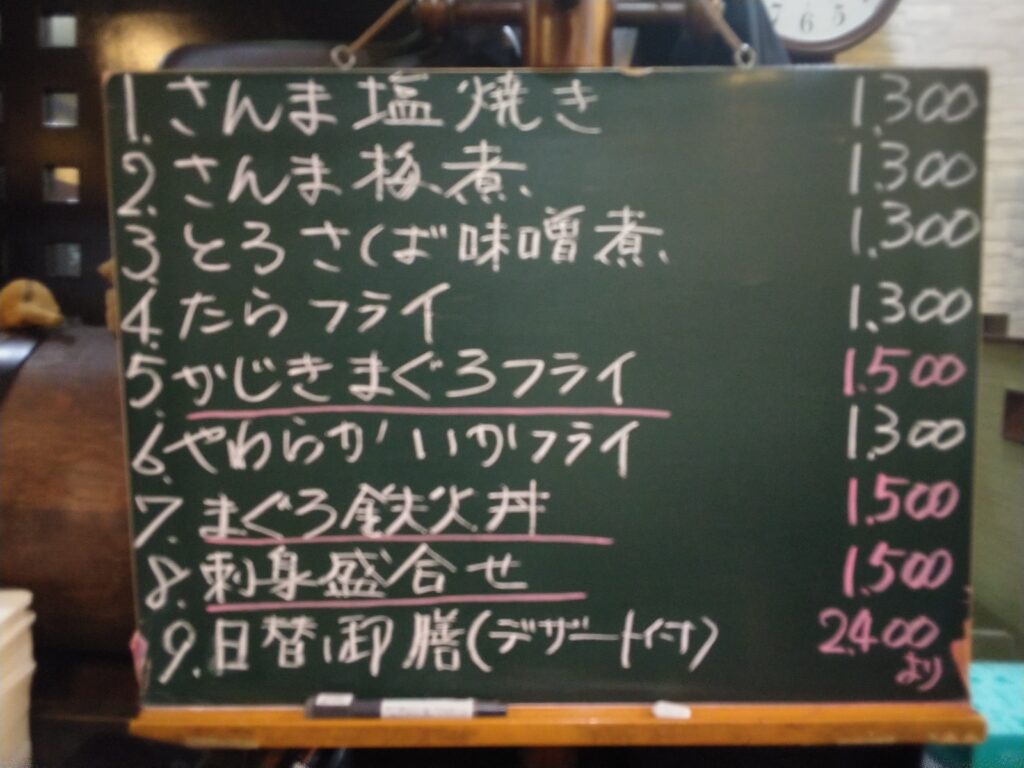 1. さんま塩焼き 1.300
2. さんま梅煮 1.300
3. とろさば味噌煮 1.300
4. たらフライ 1.300
5. かじきまぐろフライ 1.500
6. やわらかいかフライ 1.300
7. まぐろ鉄火丼 1.500
8. 刺身盛合せ 1.500
9. 日替御膳(デザート付) 2.400
より
7 6 5